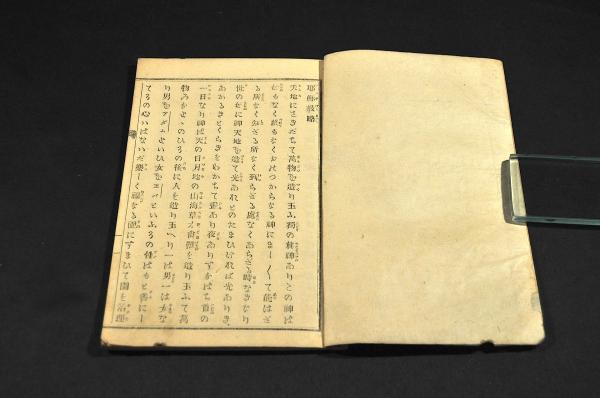 耶穌教略
天地にさきだちて萬物を造り玉ふ獨の眞神ありこの神は
始もなく終もなくおのづからなる神にましまして能はざ
る所なく知ざる所なく到らざる處なくあらざる時なきなり
世の始に神天地を造て光あれとのたまひければ光ありき
あかるきとくらきをわかちて晝あり夜ありすなはち首の
一日なり神は天の日月地の山海草木禽獸を造り玉ふて萬
物みなととのひるの後に人を造り玉へり一は男一は女な
り男をアダムといひ女をエバといふその性はもと善にし
てその心いはないだ樂しく神なる園にすまひて園を治理